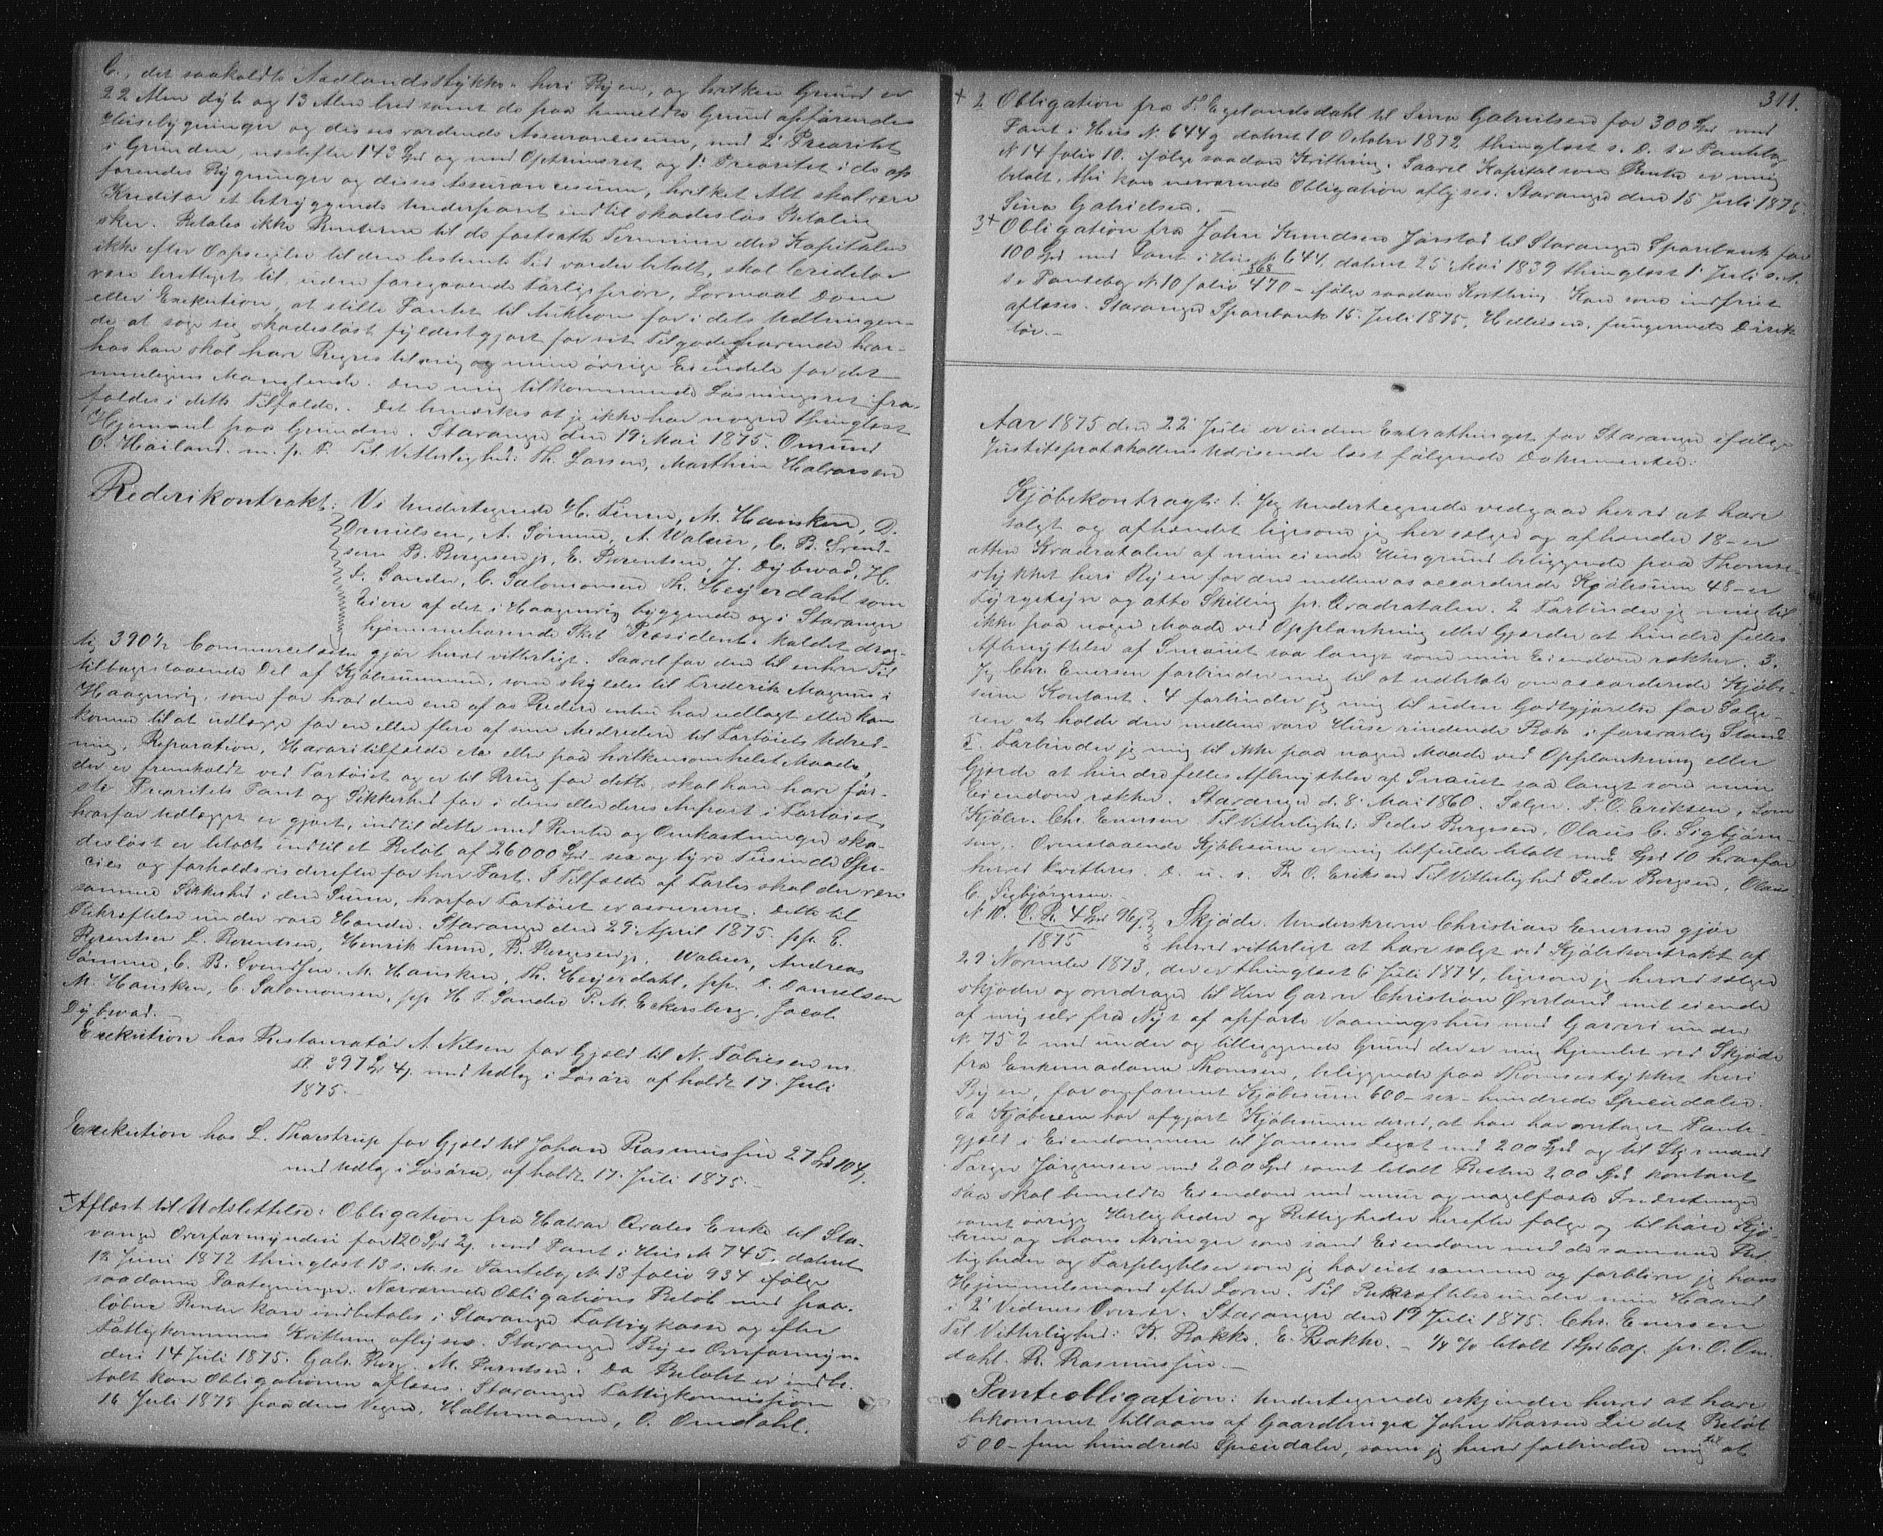 C., det saakaldte Aadlandsstykke heri Byen, og hvilken Grund er
22 Alen dyb og 13 Alen bred samt de paa bemeldte Grund opförendes
Huusbygninger og disses vordende Assurancesum, med 2' Prioritet
i Grunden, næstefter 143 Spd og med Opstrinsret og 1' Prioritet i de op-
förendes Bygninger og disses Assurancesum, hvilket Alt skal være
Kreditor et betryggende Underpant indtil skadeslös Betaling
sker. Betales ikke Renterne til de fastsatte Terminer eller Kapitalen
ikke efter Opsigelse til den bestemte Tid vorder betalt, skal Creditor
være berettiget til, uden foregaaende Forligspröve, Lovmaal Dom
eller Exekution, at stille Pantet til Auktion for i dets Udbringen-
de at söge sig skadeslöst fyldestgjort for sit Tilgodehavende hvor-
hos han skal have Regres til mig og mine övrige Eiendele for det
muligens Manglende. Den mig tilkommende Lösningsret fra-
faldes i dette Tilfælde. Det bemærkes at jeg ikke har nogen thinglæst
Hjemmel paa Grunden. Stavanger den 19' Mai 1875. Omund
O. Hailand. m. p. P. Til Vitterlighed: Th. Larsen, Marthin Halvorsen
Rederikontrakt: Vi Undertegnede H. Finne, M. Hansken, D.
Danielsen, A. Sömme, A. Waluer, C. B. Svend-
sen B. Bergesen jr, E. Berentsen, J. Dybwad, H.
F. Sander, C. Salomonsen Th. Heyerdahl som
Eiere af det i Haagenvig byggende og i Stavanger
hjemmehörende Skib Præsident kaldet dræg-
tig 390½ Commercelæster gjör herved vitterligt. Saavel for den til enhver Tid
tilbagestaaende Del af Kjöbesummen, som skyldes til Frederik Magnus i
Haagenvig, som for hvad den ene af os Redere enten har udlagt eller kan
komme til at udlægge for en eller flere af sine Medredere til Fartöiets Udred-
ning, Reparation, Havaritilfælde etc eller paa hvilkensomhelst Maade,
der er fremholdt ved Fartöiet og er til Brug for dette, skal han have för-
ste Prioritets Pant og Sikkerhed for i dens eller deres Anpart i Fartöiet
hvorfor Udlægget er gjort, indtil dette med Renter og Omkostninger ska-
deslöst er betalt indtil et Belöb af 26000 Spd - sex og tyve Tusinde Spe-
cies og forholdsvis derefter for hver Part. I Tilfælde af Forlis skal der være
samme Sikkerhed i den Summe, hvorfor Fartöiet er assureret. Dette til
Bekræftelse under vore Hænder. Stavanger den 29' April 1875. pp. E.
Berentsen L. Berentsen, Henrik Finne, B. Bergesen jr. Waluer, Andreas
Sömme, C. B. Svendsen. M. Hansken, Th. Heyerdahl, pp. D. Danielsen
M. Hansken, C. Salomonsen, pp H. F. Sander P. M. Eckersberg, Jacob
Dybwad.
Exekution hos Restauratör A. Nilsen for Gjæld til N. Tobiesen m.
Fl. 397 Spd 4 ß. med Udlæg i Lösöre afholdt 17' Juli
1875.
Exekution hos L. Thorstrup for Gjæld til Johan Rasmussen 27 Spd 104 ß.
med Udlæg i Lösöre, afholdt 17' Juli 1875.
+ Aflæst til Udslettelse: Obligation fra Halvor Qvales Enke til Sta-
vanger Overformynderi for 120 Spd 2 ß. med Pant i Huus N. 745, dateret
12 Juni 1872 thinglæst 13 s. M. se Pantebog N. 13 folio 934 ifölge
saadanne Paategninger. Nærværende Obligations Belöb med paa-
löbne Renter kan indbetales i Stavanger Fattigkasse og efter
Fattigkommiss Kvittum aflyses. Stavanger Byes Overformyn-
deri 14 Juli 1875. Gabr. Berg. M. Berentsen. Da Belöbet er indbe-
talt kan Obligationen aflæses. Stavanger Fattigkommission
16 Juli 1875 paa dens Vegne, Halvemann, O. Omdahl.
311.
+ 2 Obligation fra T. Egelandsdahl til Sina Gabrielsen for 300 Spd med
Pant i Huus N. 644 g dateret 10 Octobr 1872 thinglæst s. D. se Pantebog
N 14 folio 10. ifölge saadan Kvittring. Saavel Kapital som Renter er mig
betalt, thi kan nærværende Obligation aflyses. Stavanger den 15 Juli 1875
Sina Gabrielsen.
3 + Obligation fra John Knudsen Jörstad til Stavanger Sparebank for
100 Spd med Pant i Huus N. 644, dateret 25' Mai 1839 thinglæst 1' Juli s. A.
se Pantebog N. 10 folio 470 - ifölge saadan Kvittring. Kan som indfriet
aflæses. Stavanger Sparebank 15. Juli 1875, Helliesen, fungerende Direk-
tör. -
Aar 1875 den 22' Juli er inden Extrathinget for Stavanger ifölge
Justitsprotokollens Udvisende læst fölgende Dokumenter:
Kjöbekontragt: 1. Jeg Undertegnede vedgaar herved at have
solgt og afhændet ligesom jeg her sælger og afhænder 18 - er
atten Kvadratalen af min eiende Huusgrund beliggende paa Thomse-
stykket heri Byen for den mellem os accorderede Kjöbesum 48 - er
Fyrgetyve og otte Skilling pr. Qvadratalen. 2 Forbinder jeg mig til
ikke paa nogen Maade ved Opplankning eller Gjerder at hindre fælles
Afbenyttelse af Smauet saa langt som min Eiendom rækker. 3.
Jeg Chr. Enersen forbinder mig til at udbetale omaccorderede Kjöbe-
sum Kontant. 4 forbinder jeg mig til uden Godtgjörelse for Sælge-
ren at holde den mellem vore Huse rindende Bæk i forsvarlig Stand
5. Forbinder jeg mig til ikke paa nogen Maade ved Opplankning eller
Gjerde at hindre fælles Afbenyttelse af Smauet saa langt som min
Eiendom rækker. Stavanger d. 8' Mai 1860. Sælger B. O. Eriksen, Som
Kjöber. Chr. Enersen. Til Vitterlighed: Peder Bergesen. Olaus C. Sigbjörn-
sen. Ovenstaaende Kjöbesum er mig tilfulde betalt med Spd 10 hvorfor
herved kvitteres. D. u. s. B. O. Eriksen Til Vitterlighed Peder Bergsen, Olaus
C. Sigbjörnsen.
N 10. O. R. 4 Spd 96 ß.
1875
Skjöde. Underskrevne Christian Enersen gjör
herved vitterligt at have solgt ved Kjöbekontrakt af
29 November 1873, der er thinglæst 6 Juli 1874, ligesom jeg herved sælger
skjöder og overdrager til Herr Garver Christian Överland mit eiende
af mig selv fra Nyt af opförte Vaaningshus med Garveri under
N. 752 med under og tilliggende Grund der er mig hjemlet ved Skjöde
fra Enkemadame Thomsen, beliggende paa Thomsestykket heri
Byen, for omforenet Kjöbesum 600 - sex - hundrede Speciedaler.
Da Kjöberen har afgjort Kjöbesummen derved, at han har overtaget Pante-
gjæld i Eiendommen til Jansens Legat med 200 Spd og til Styrmand
Torger Jörgensen med 200 Spd samt betalt Resten 200 Spd kontant
saa skal bemeldte Eiendom med muur og nagelfaste Indretninger
samt övrige Herligheder og Rettigheder herefter fölge og tilhöre Kjö-
beren og Hans Arvinger som sand Eiendom med de samme Ret-
tigheder og Forpligtelser som jeg har eiet samme og forbliver jeg hans
Hjemmelsmand efter Loven. Til Bekræftelse under min Haand
i 2' Vidners Overvær. Stavanger den 19' Juli 1875. Chr. Enersen
Til Vitterlighed: K. Bokke. E. Bakke. - ¼ % betalt 1 Spd 60 ß. pr. O. Om-
dahl. R. Rasmussen -
Panteobligation: Undertegnede erkjender herved at have
bekommet tillaans af Gaardbruger John Thorsen Lie det Belöb
500 - fem hundrede Speciedaler, som jeg herved forbinder mig til at